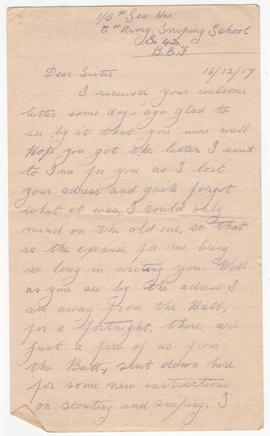 1/5th Sea. Hrs.
5th Army Sniping School
B.E.F
Dear Sister 16/12/17
I received your welcome
letter some days ago glad to
see by it that you were well
Hope you got the letter I sent
to Ina for you as I lost
your adress and quite forgot
what it was, I could only
mind on the old one, so that
is the excuse for me being
so long in writing you. Well
as you see by the adress I
am away from the Batt,
for a fortnight, there are
just a few of us from
the Batt, sent down here
for some new instructions
on scouting and sniping, I